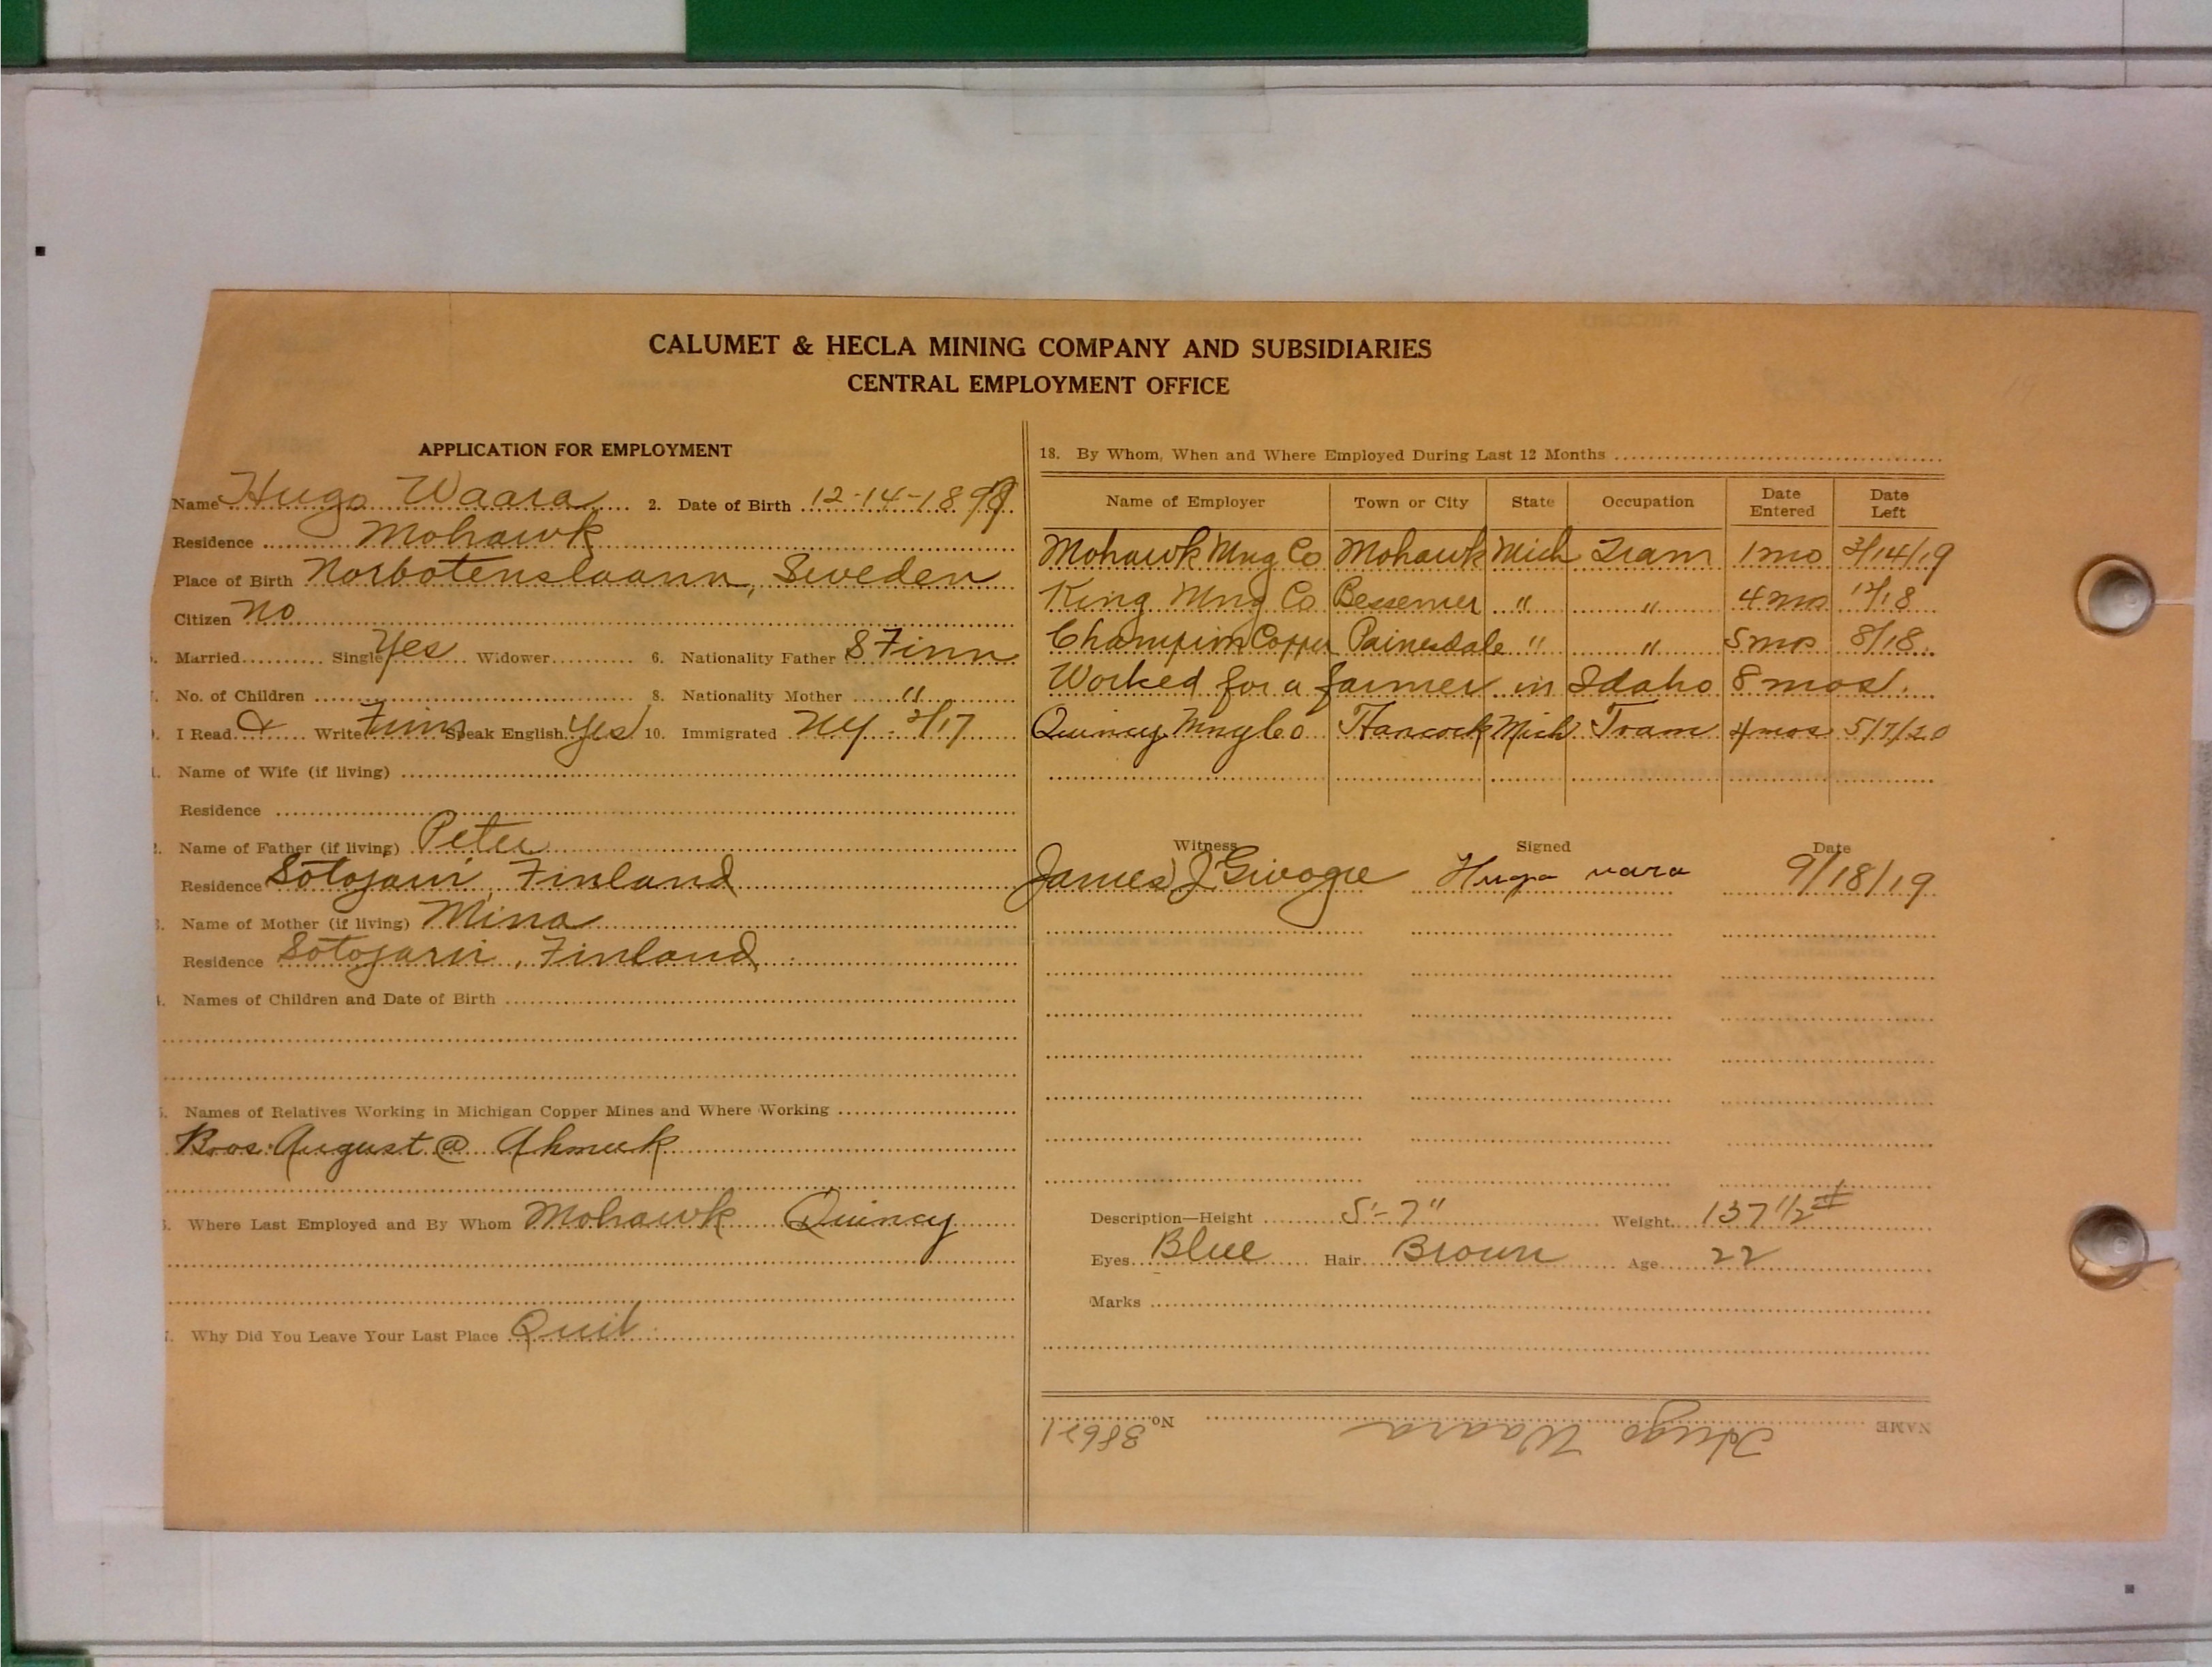 CALUMET & HECLA MINING COMPANY AND SUBSIDIARIES
CENTRAL EMPLOYMENT OFFICE
APPLICATION FOR EMPLOYMENT
Name Hugo Waara 2. Date of Birth 12-14-1898
Residence Mohawk
Place of Birth Norbotenslaann, Sweden
Citizen no
Married Single Yes Widower 6. Nationality Father S Finn
No. of Children 8. Nationality Mother "
I Read & Write Finn Speak English Yes 10. Immigrated NY. 2/17
Name of Wife (if living)
Residence
Name of Father (if living) Peter
Residence Sotojarvi, Finland
Name of Mother (if living) Mina
Residence Sotojarvi, Finland
Names of Children and Date of Birth
Names of Relatives Working in Michigan Copper Mines and Where Working
Bros. August @ Ahmeek
Where Last Employed and By Whom Mohawk Quincy
Why Did You Leave Your Last Place Quit
18. By Whom, When and Where Employed During Last 12 Months
Name of Employer Town or City State Occupation Date Entered Date Left
Mohawk Mng Co Mohawk Mich Tram 1 mo 3/14/19
King Mng Co Bessemer " " 4 mo 12/18
Champion Copper Painesdale " " 5 mos 8/18
Worked for a farmer in Idaho 8 mos.
Quincy Mng Co Hancock Mich Tram 4 mos 5/7/20
Witness Signed Date
James J Givogre Hugo vara 9/18/19
Description—Height 5'-7" Weight 137 1/2 #
Eyes Blue Hair Brown Age 22
Marks
NAME Hugo Waara No. 38671